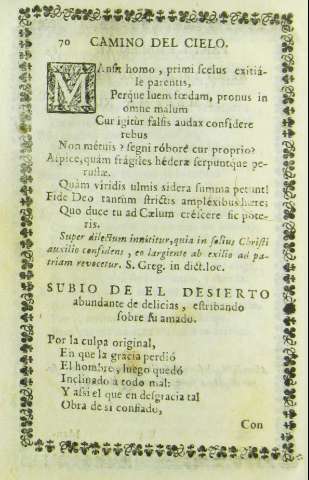 70 CAMINO DEL CIELO.
MAnsit homo, primi scelus exitiá-
le parentis,
Perque luem fœdam, pronus in
omne malum
Cur igitur falsis audax confidere
rebus
Non métuis? segni róbore cur proprio?
Aspice, quám frágiles héderæ serpuntque pe-
rustæ.
Quám viridis ulmis sidera summa petunt!
Fide Deo tantùm strictis amplexibus hære;
Quo duce tu ad Cælum créscere sic pote-
ris.
Super dilectum innititur, quia in solius Christi
auxilio confidens, eo largiente ab exilio ad pa-
triam revocetur. S. Greg. in dict. loc.
SUBIO DE EL DESIERTO
abundante de delicias, estribando
sobre su amado.
Por la culpa original,
En que la gracia perdiò
El hombre, luego quedó
Inclinado a todo mal:
Y assi el que en desgracia tal
Obra de si confiado,
Con